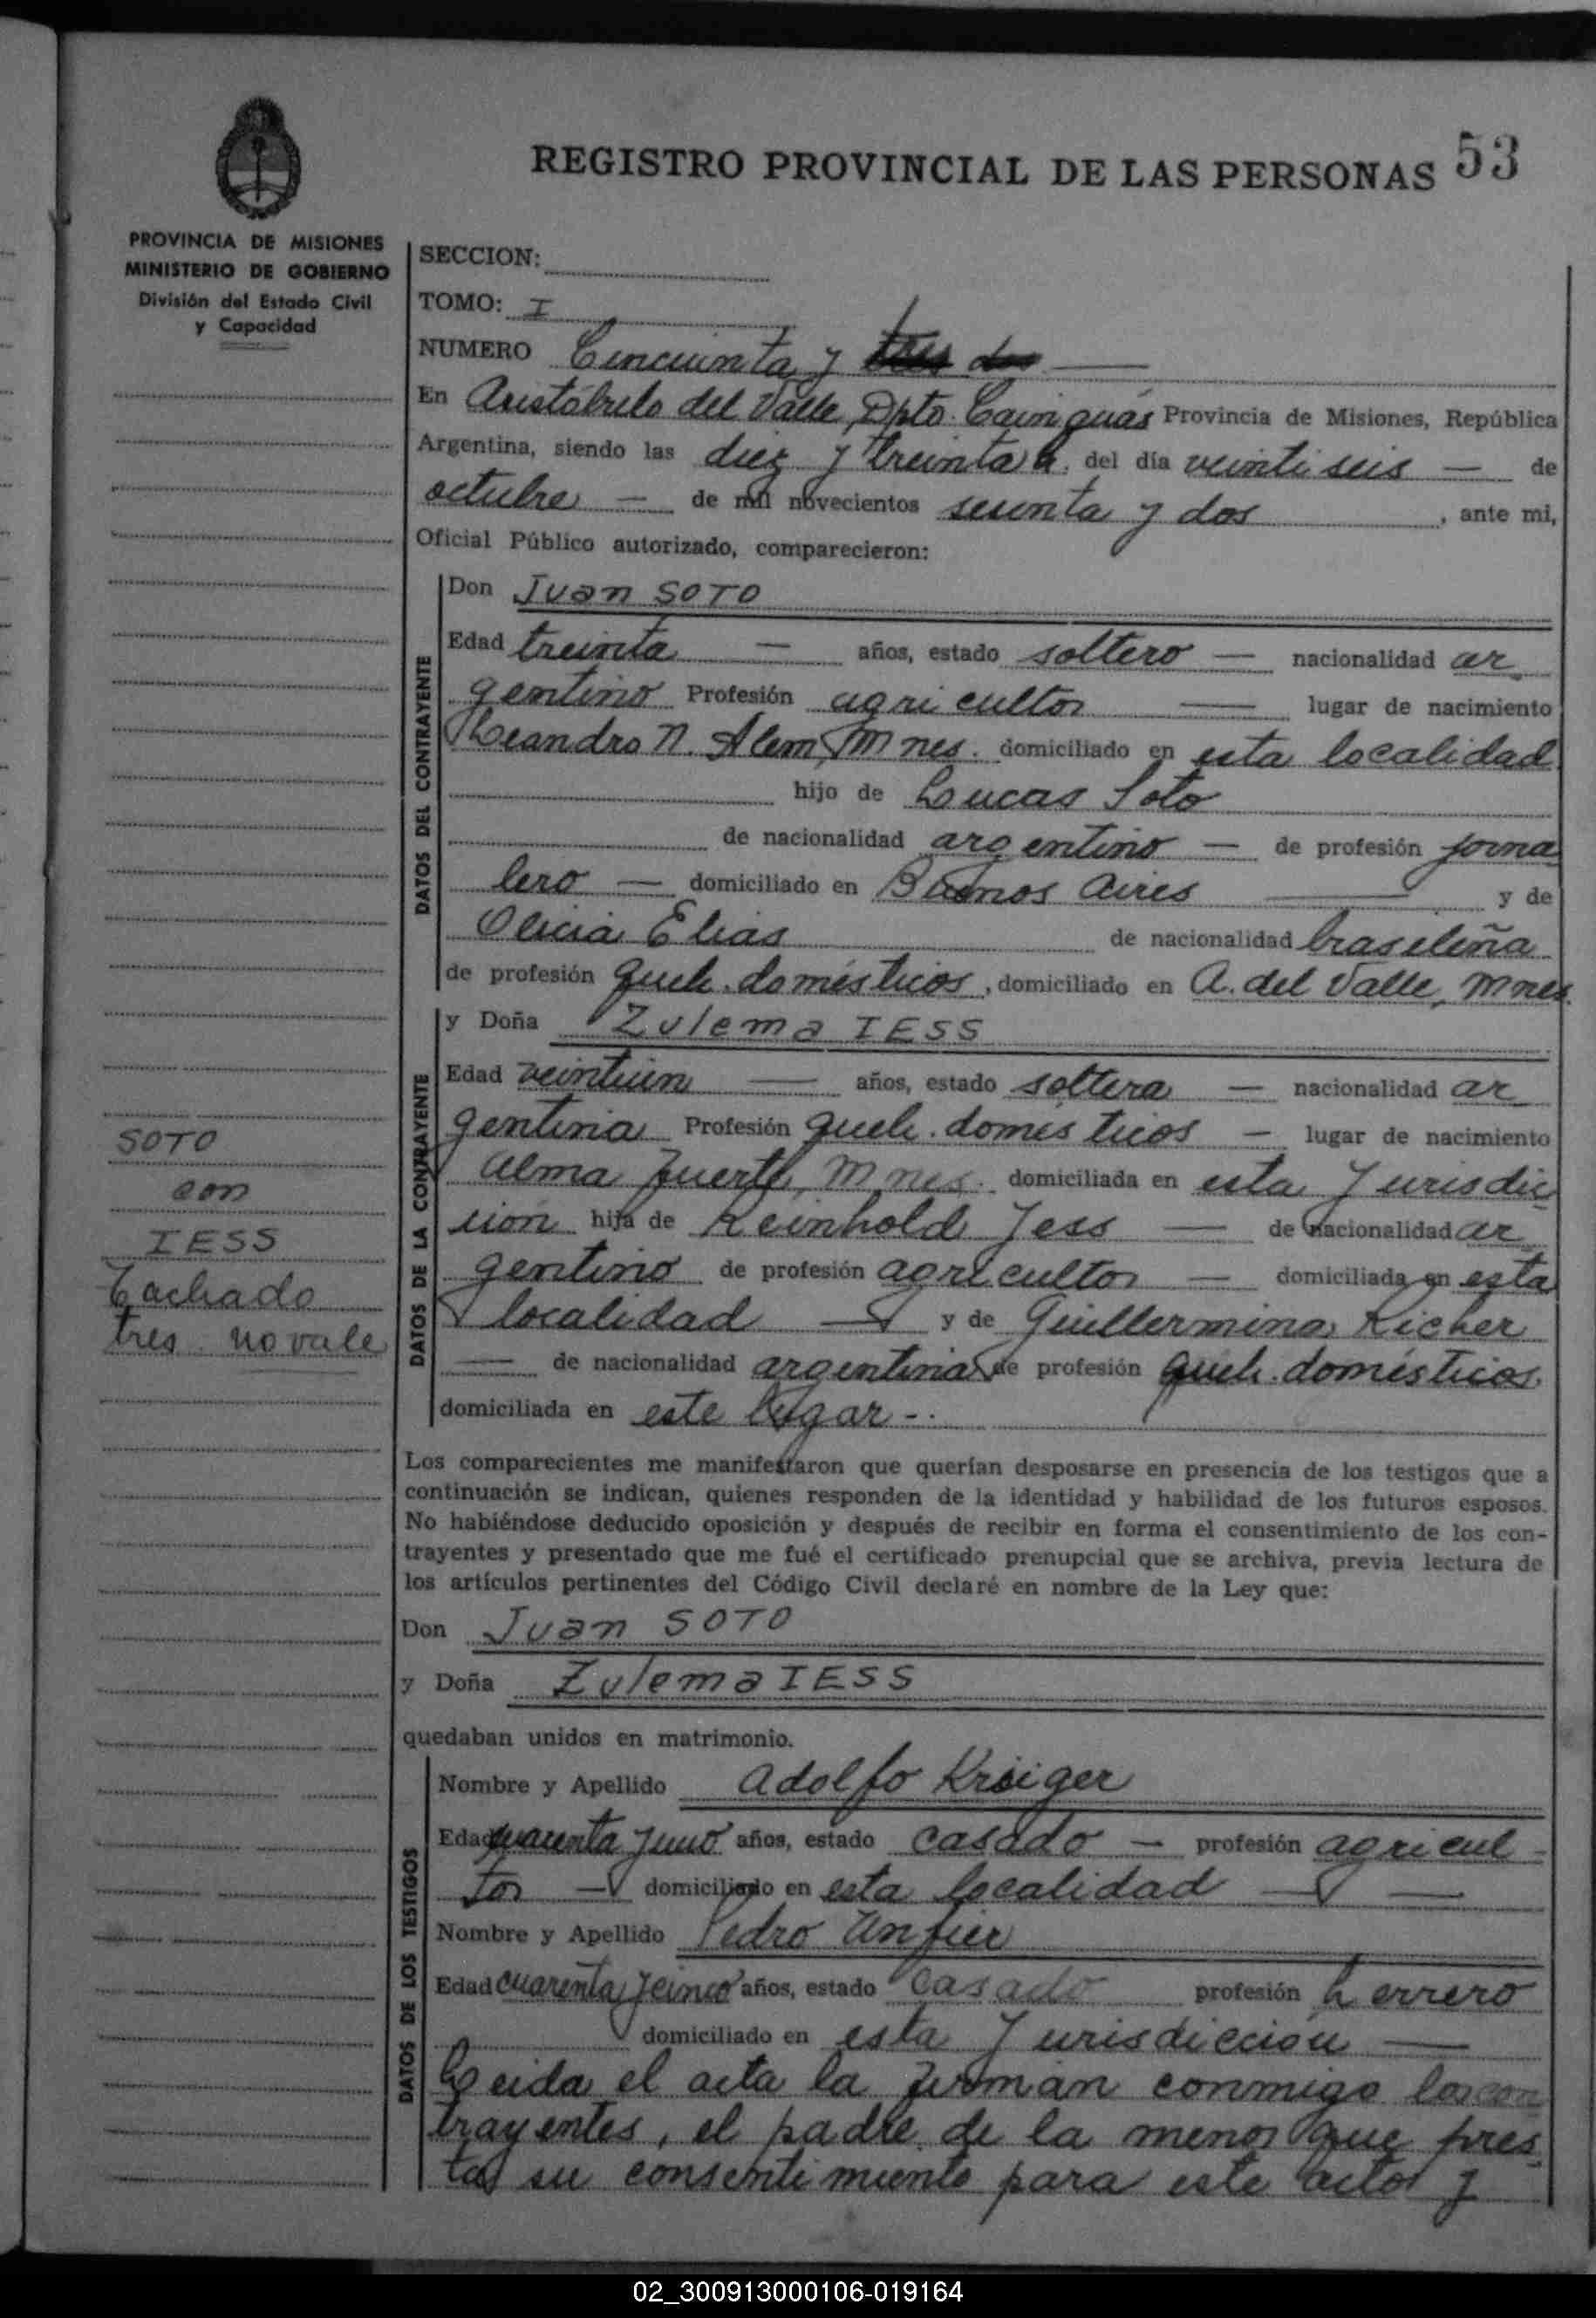 REGISTRO PROVINCIAL DE LAS PERSONAS 53
PROVINCIA DE MISIONES
MINISTERIO DE GOBIERNO
División del Estado Civil
y Capacidad
SECCION:
TOMO: I
NUMERO Cincuenta y tres dos
En Aristóbulo del Valle, Dpto. Cainguás Provincia de Misiones, República
Argentina, siendo las diez y treinta h. del día veintiseis de
octubre de mil novecientos sesenta y dos, ante mi,
Oficial Público autorizado, comparecieron:
DATOS DEL CONTRAYENTE
Don Juan SOTO
Edad treinta años, estado soltero nacionalidad ar
gentino Profesión agricultor lugar de nacimiento
Leandro N. Alem, Mnes. domiciliado en esta localidad
hijo de Lucas Soto
de nacionalidad argentino de profesión jorna
lero domiciliado en Buenos Aires y de
Olicia Elias de nacionalidad brasileña
de profesión queh. domésticos, domiciliado en A. del Valle, Mnes.
DATOS DE LA CONTRAYENTE
y Doña Zulema IESS
Edad veintiun años, estado soltera nacionalidad ar
gentina Profesión queh. domésticos lugar de nacimiento
Alma Fuerte, Mnes. domiciliada en esta Jurisdic
cion hija de Reinhold Jess de nacionalidad ar
gentino de profesión agricultor domiciliada en esta
localidad y de Guillermina Richer
de nacionalidad argentina de profesión queh. domésticos,
domiciliada en este lugar -.
SOTO
con
IESS
Tachado
tres no vale
Los comparecientes me manifestaron que querían desposarse en presencia de los testigos que a
continuación se indican, quienes responden de la identidad y habilidad de los futuros esposos.
No habiéndose deducido oposición y después de recibir en forma el consentimiento de los con-
trayentes y presentado que me fué el certificado prenupcial que se archiva, previa lectura de
los artículos pertinentes del Código Civil declaré en nombre de la Ley que:
Don Juan SOTO
y Doña Zulema IESS
quedaban unidos en matrimonio.
DATOS DE LOS TESTIGOS
Nombre y Apellido Adolfo Krieger
Edad cuarenta y uno años, estado casado profesión agricul
tor domiciliado en esta localidad
Nombre y Apellido Pedro
Edad cuarenta y cinco años, estado casado profesión herrero
domiciliado en esta Jurisdicción
Leida el acta la firman conmigo los con
trayentes, el padre de la menor que pres
ta su consentimiento para este acto y
02_300913000106-019164